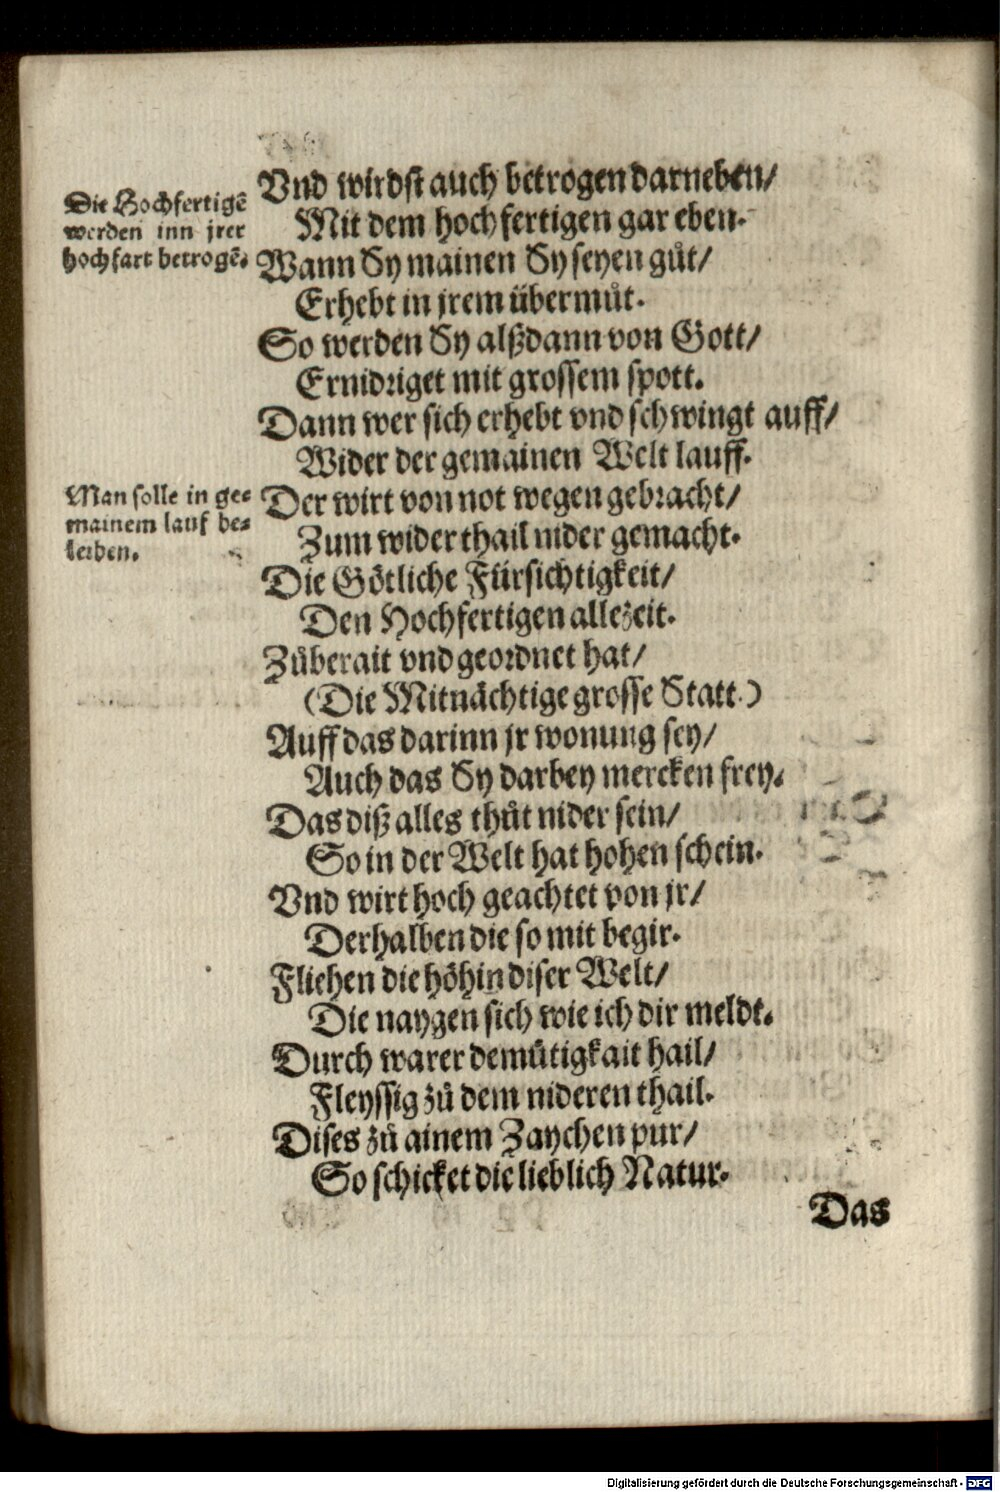 Die Hochfertigẽ
werden inn jrer
hochfart betrogẽ.
Vnd wirdst auch betrogen darneben/
Mit dem hochfertigen gar eben.
Wann Sy mainen Sy seyen guͦt/
Erhebt in jrem übermuͦt.
So werden Sy alßdann von Gott/
Ernidriget mit grossem spott.
Dann wer sich erhebt vnd schwingt auff/
Wider der gemainen Welt lauff.
Man solle in ge=
mainem lauf be=
leiben.
Der wirt von not wegen gebracht/
Zum widerthail nider gemacht.
Die Goͤtliche Fürsichtigkeit/
Den Hochfertigen allezeit.
Zuͦberait vnd geordnet hat/
(Die Mitnaͤchtige grosse Statt.)
Auff das darinn jr wonung sey/
Auch das Sy darbey mercken frey.
Das diß alles thuͦt nider sein/
So in der Welt hat hohen schein.
Vnd wirt hoch geachtet von jr/
Derhalben die so mit begir.
Fliehen die hoͤhin diser Welt/
Die naygen sich wie ich dir meldt.
Durch warer demuͤtigkait hail/
Fleyssig zuͦ dem nideren thail.
Dises zuͦ ainem Zaychen pur/
So schicket die lieblich Natur.
Das
Digitalisierung gefördert durch die Deutsche Forschungsgemeinschaft - DFG